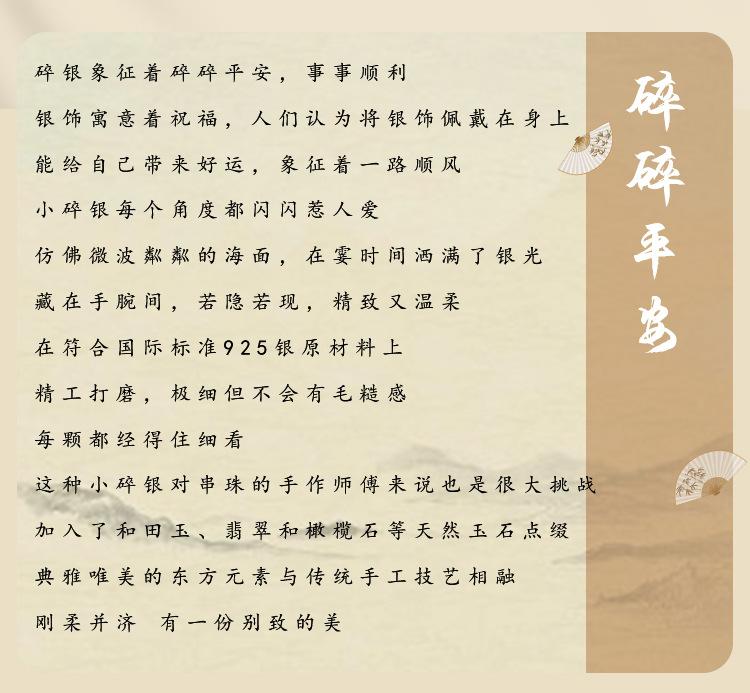 碎银象征着碎碎平安，事事顺利
银饰寓意着祝福，人们认为将银饰佩戴在身上
能给自己带来好运，象征着一路顺风
小碎银每个角度都闪闪惹人爱
仿佛微波粼粼的海面，在霎时间洒满了银光
藏在手腕间，若隐若现，精致又温柔
在符合国际标准925银原材料上
精工打磨，极细但不会有毛糙感
每颗都经得住细看
这种小碎银对串珠的手作师傅来说也是很大挑战
加入了和田玉、翡翠和橄榄石等天然玉石点缀
典雅唯美的东方元素与传统手工技艺相融
刚柔并济 有一份别致的美
碎碎平安